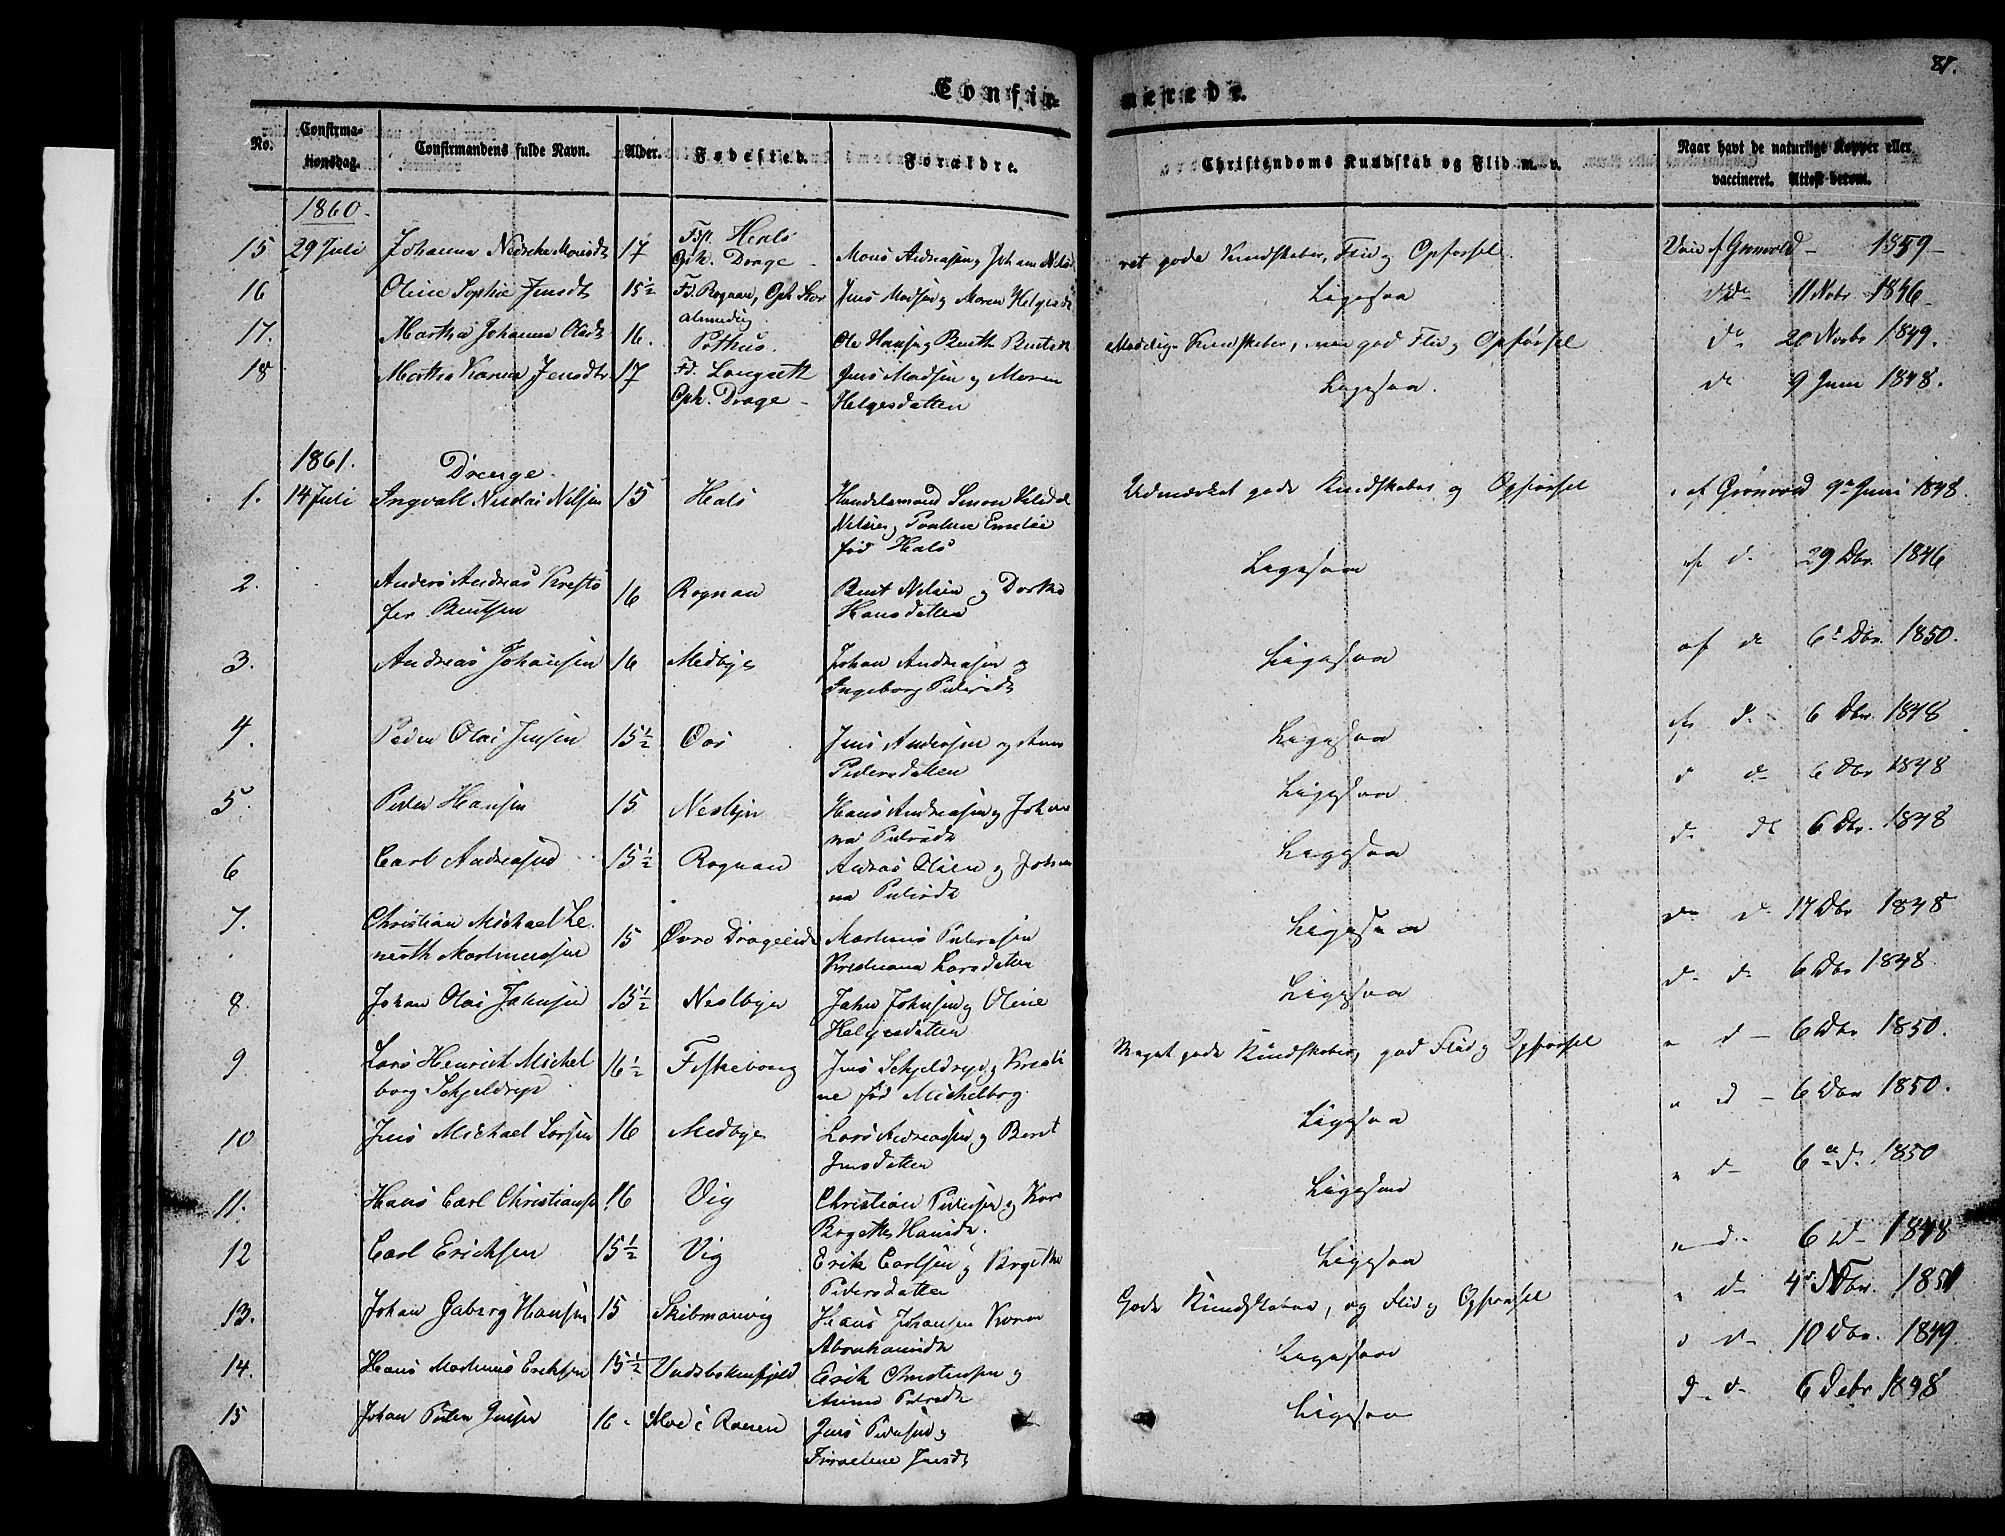 81.
Confir-
merede.
No.
Confirma-
tionsdag.
Confirmandens fulde Navn.
Alder.
Fødested.
Forældre.
Christendoms Kundskab og Flid m. v.
Naar havt de naturlige Kopper eller
vaccineret. Attest derom.
1860.
15 29 Juli Johanna Monsdt 17 Fdp. Hals Mons Andreasen og Johanna
Oph. Drage
ret gode Kundskaber, Flid og Opførsel. 1859
16 Oline Sophie Jensdt 15½ Fd. Rognan, Oph. Jens Madsen og Maren Helgesdt
Ligesaa do 11 Nobr 1846
17. Martha Johanna Olsdt 16. Pothus. Ole Hansen og Berith Bentsdt
Maadelige Kundskaber, men god Flid og Opførsel do 20 Novbr 1849.
18 Martha Karna Jensdtr 17 Fd. Langsett Jens Madsen og Maren
Oph. Drage Helgesdatten
Ligesaa. do 9 Juni 1848.
1861. Drenge.
1. 14 Juli Ingvall Nicolai Nilsen 15 Hals Handelsmand Simon
Nilsen og Pauline Emelie
fød Hals
Udmærket gode Kundskaber og Opførsel af Grønvold 9de Juni 1848.
2. Anders Andreas Kristo
fer Bentsen 16 Rognan Bent Nilsen og Dorthe
Hansdatten
Ligesaa af do 29 Dbr. 1846
3. Andreas Johansen 16 Medbye Johan Andreasen og
Ingeborg Pedersdt
Ligesaa af do 6te Dbr. 1850.
4. Peder Olai Jensen 15½ Oos Jens Andersen og Anne
Pedersdatten
Ligesaa af do 6 Dbr. 1848
5. Peder Hansen 15 Nesbyn Hans Andreasen og Johan
na Pedersdt
Ligesaa do 6 Dbr 1848
6 Carl Andreasen 15½ Rognan Andreas Olsen og Johan
na Pedersdt
Ligesaa do 6 Dbr. 1848
7. Christian Michael Le
nerth Martinussen 15 Øvre Drageeide Martinus Pedersen
Kristiana Larsdatten
Ligesaa do 17 Dbr 1848
8. Johan Olai Johnsen 15½ Nestbyen John Johnsen og Oline
Helgesdatten
Ligesaa do 6 Dbr 1848.
9 Lars Henrich Michel
borg Schjeldrup 16½ Fiskevaag Jens Schjeldrup og Kristi
ne fød Michelborg.
Meget gode Kundskaber, god Flid og Opførsel " do 6 Dbr 1850.
10 Jens Michael Larsen 16 Medbye Lars Andreassen og Berit
Jensdatten
Ligesaa " do 6 Dbr 1850.
11. Hans Carl Christians 16 Vig Christian Pedersen og Kar
Birgitte Hansdt.
Ligesaa " do 6 do 1850
12 Carl Erichsen 15½ Vig Erik Carlsen og Birgitte
Pedersdatten
Ligesaa " do 6 do 1848
13. Johan Gaberg Hansen 15 Skibmanvig Hans Johansen Karen
Abrahamsdt
Gode Kundskaber, og Flid og Opførsel " do 4de Nbr. 1851
14. Hans Martinus Eriksen 15½ Vadsbakenfjeld Erik Christensen og
Anne Pedersdt
Ligesaa do 10 Dbr. 1849
15 Johan Peter Jensen 16 Moe i Ranen Jens Pedersen og
Jensdt
Ligesaa do 6 Debr 1848